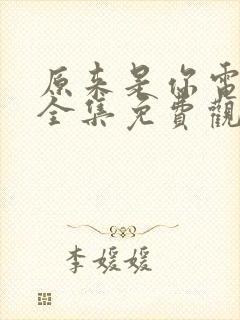 原来是你電
全集免費觀
李媛媛